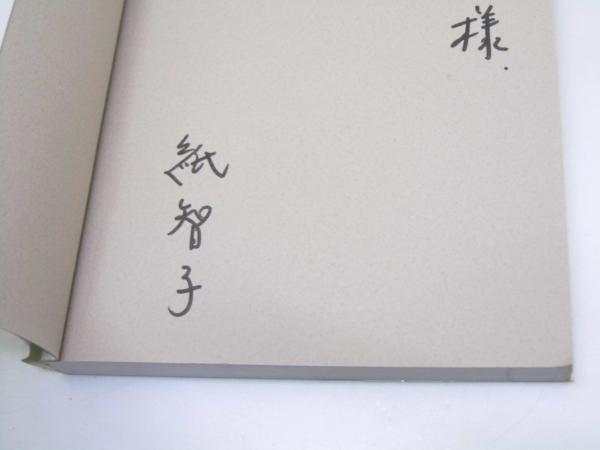 様.
紙智子